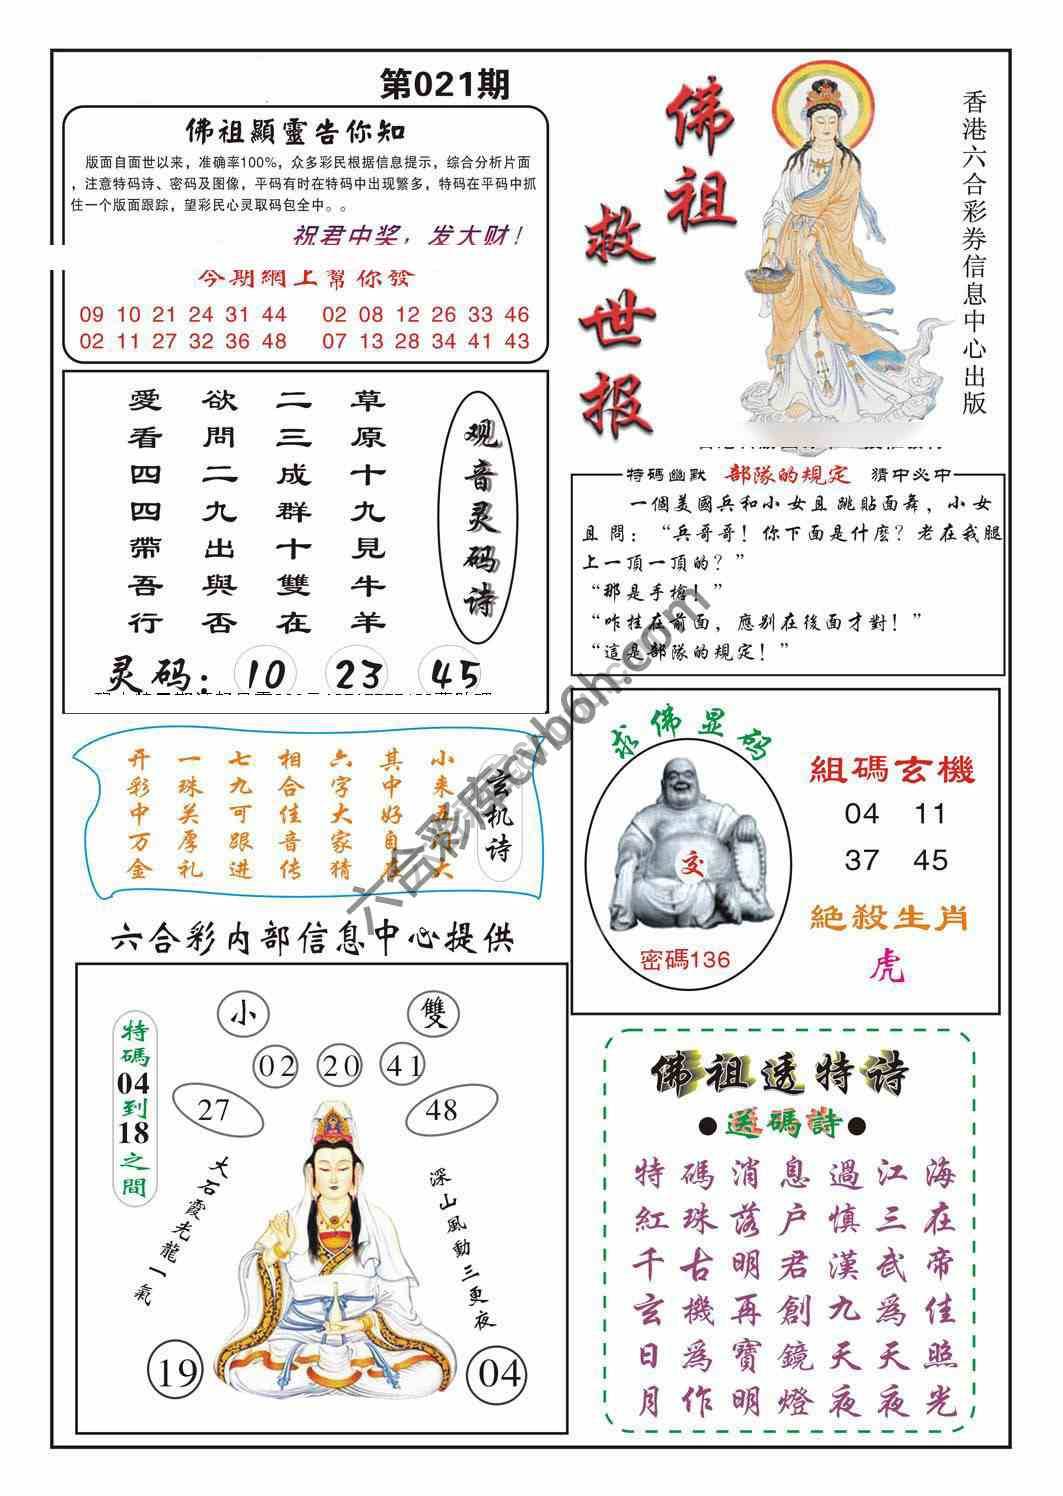 第021期
佛祖顯靈告你知
版面自面世以来，准确率100%，众多彩民根据信息提示，综合分析片面
，注意特码诗、密码及图像，平码有时在特码中出现繁多，特码在平码中抓
住一个版面跟踪，望彩民心灵取码包全中。。
祝君中奖，发大财！
今期網上幫你發
09 10 21 24 31 44 02 08 12 26 33 46
02 11 27 32 36 48 07 13 28 34 41 43
佛祖
救世报
香港六合彩券信息中心出版
愛欲二草
看問三原
四二成十
四九群九
帶出十見
吾與雙牛
行否在羊
观音灵码诗
灵码：10 23 45
特碼幽默 部隊的規定 猜中必中
一個美國兵和小女且跳貼面舞，小女
且問：“兵哥哥！你下面是什麼？老在我腿
上一頂一頂的？”
“那是手槍！”
“咋挂在前面，應别在後面才對！”
“這是部隊的規定！”
开一七相六其小
彩珠九合字中来
中关可佳大好五
万厚跟音家自门
金礼进传猜在大
玄机诗
求佛显码
交
密碼136
組碼玄機
04 11
37 45
絕殺生肖
虎
六合彩内部信息中心提供
小 雙
02 20 41
27 48
特碼04到18之間
大石霞光龍一氣
深山風動三更夜
19 04
佛祖透特诗
●送碼詩●
特碼消息過江海
紅珠落户慎三在
千古明君漢武帝
玄機再創九為佳
日為寶鏡天天照
月作明燈夜夜光
六合彩库cvb6h.com